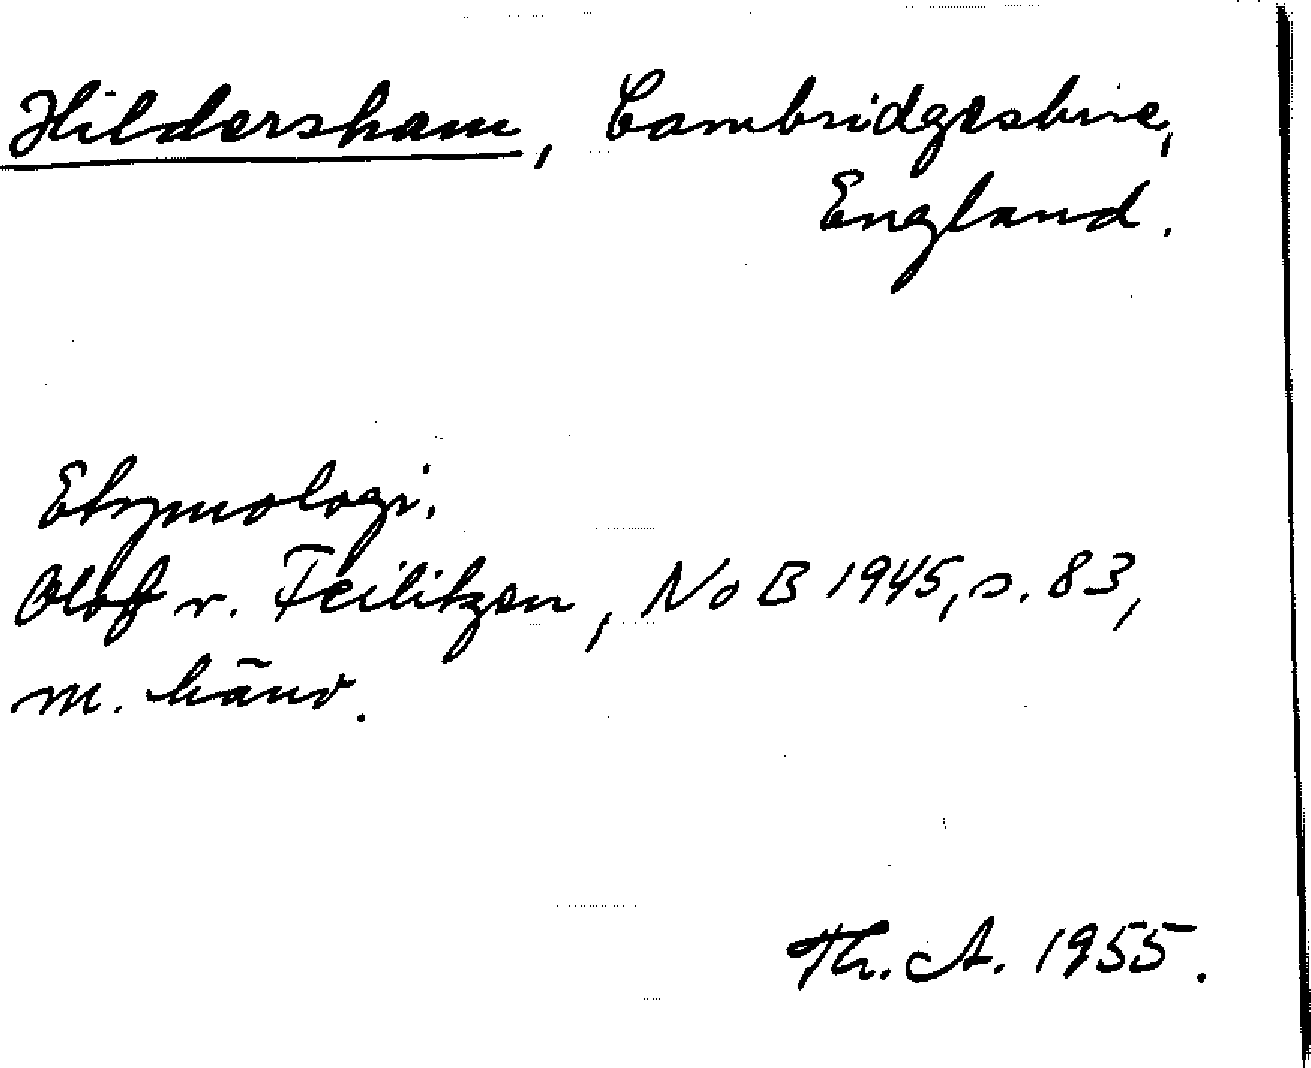 Hildersham, Cambridgeshire,
England.
Etymologi.
Olof v. Feilitzen, NoB 1945, s. 83,
m. hänv.
Th. A. 1955.